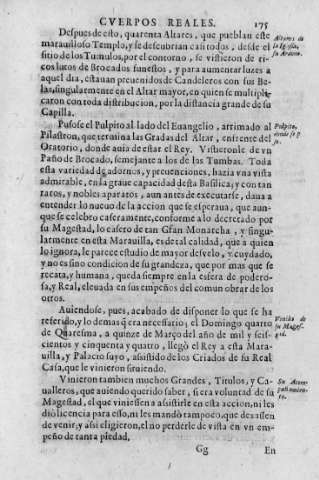 CVERPOS REALES.
175
Despues de esto, quarenta Altares, que pueblan este
marauilloso Templo, y se descubrian casi todos, desde el
sitio de los Tumulos, por el contorno, se vistieron de ri-
cos lutos de Brocados funestos, y para aumentar luzes a
aquel dia, estauan preuenidos de Candeleros con sus Be-
las, singularmente en el Altar mayor, en quien se multipli-
caron con toda distribucion, por la distancia grande de su
Capilla.
Altares de
la Iglesia,
su Aparato.
Pusose el Pulpito al lado del Euangelio, arrimado al
Pilastron, que termina las Gradas del Altar, enfrente del
Oratorio, donde auia de estar el Rey. Vistieronle de vn
Paño de Brocado, semejante a los de las Tumbas. Toda
esta variedad de adornos, y preuenciones, hazia vna vista
admirable, en la graue capacidad desta Basilica; y con tan
raros, y nobles aparatos, aun antes de executarse, daua a
entender lo nueuo de la accion que se esperaua, que aun-
que se celebro caseramente, conforme a lo decretado por
su Magestad, lo casero de tan Gran Monarcha, y singu-
larmente en esta Marauilla, es de tal calidad, que a quien
lo ignora, le parece estudio de mayor desvelo, y cuydado,
y no es sino condicion de su grandeza, que por mas que se
recata, y humana, queda siempre en la esfera de podero-
sa, y Real, eleuada en sus empeños del comun obrar de los
otros.
Pulpito,
donde se p
so.
Auiendose, pues, acabado de disponer lo que se ha
referido, y lo demas q̃ era necessario; el Domingo quarto
de Quaresma, a quinze de Março del año de mil y seis-
cientos y cinquenta y quatro, llegò el Rey a esta Mara-
uilla, y Palacio suyo, assistido de los Criados de su Real
Casa, que le vinieron siruiendo.
Venida de
su Mages-
tad.
Vinieron tambien muchos Grandes, Titulos, y Ca-
ualleros, que auiendo querido saber, si era voluntad de su
Magestad, el que viniessen a assistirle en esta accion, ni les
dió licencia para esso, ni les mandò tampoco, que dexassen
de venir, y assi eligieron, el no perderle de vista en vn em-
peño de tanta piedad.
Su Acom-
pañamien-
to.
Gg
En